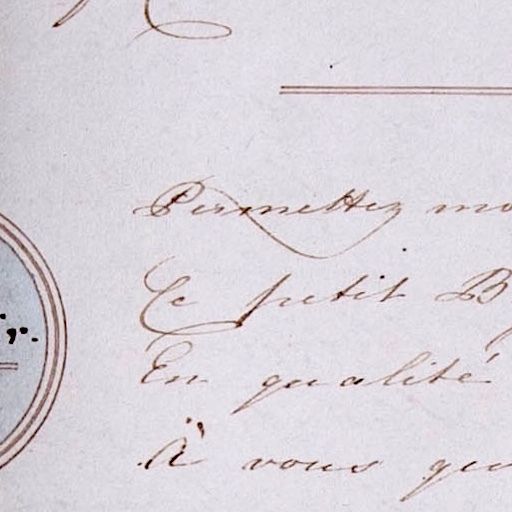 Permettez mo
Ce petit B
En qualité
À vous qu